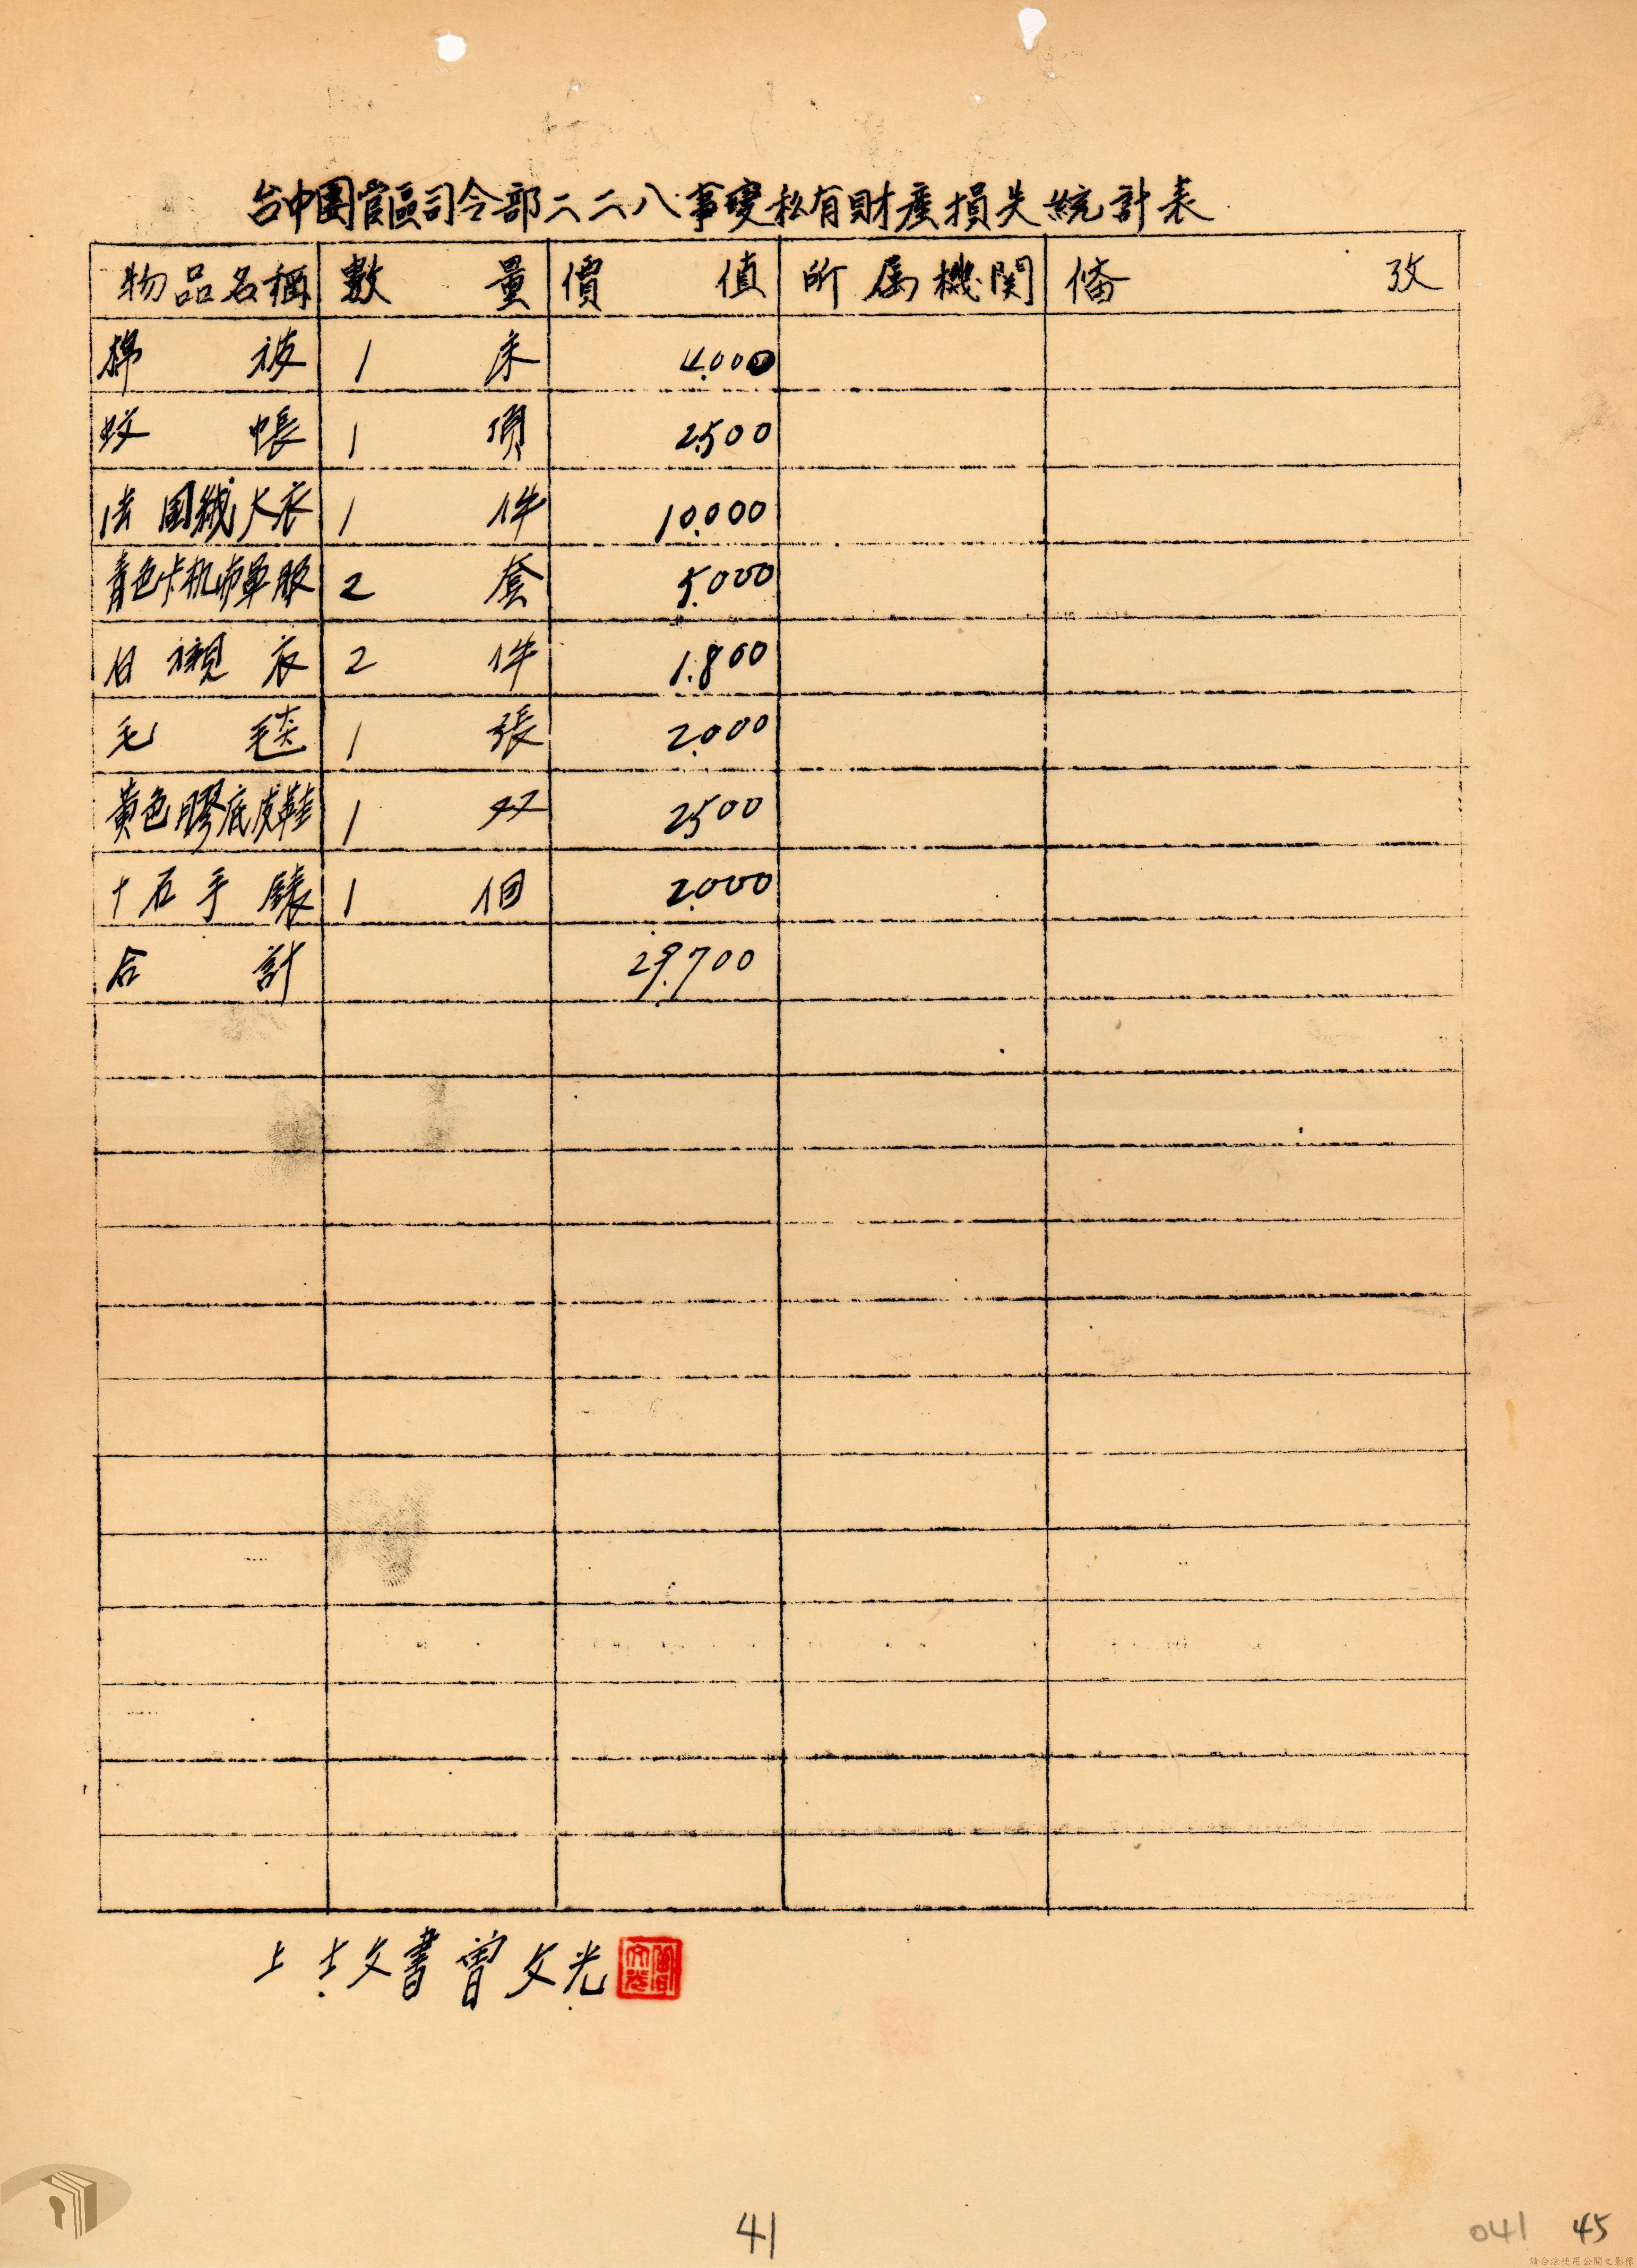 台中團管區司令部二二八事變私有財產損失統計表
物品名稱 數量 價值 所属機関 俻攷
棉被 1床 4.000
蚊帳 1頂 2.500
法国絨大衣 1件 10.000
青色卡机布單服 2套 5.000
白襯衣 2件 1.800
毛毯 1張 2.000
黃色膠底皮鞋 1双 2.500
十石手錶 1個 2.000
合計 29.700
上士文書曾文光
41
041 45
請合法使用公開之影像